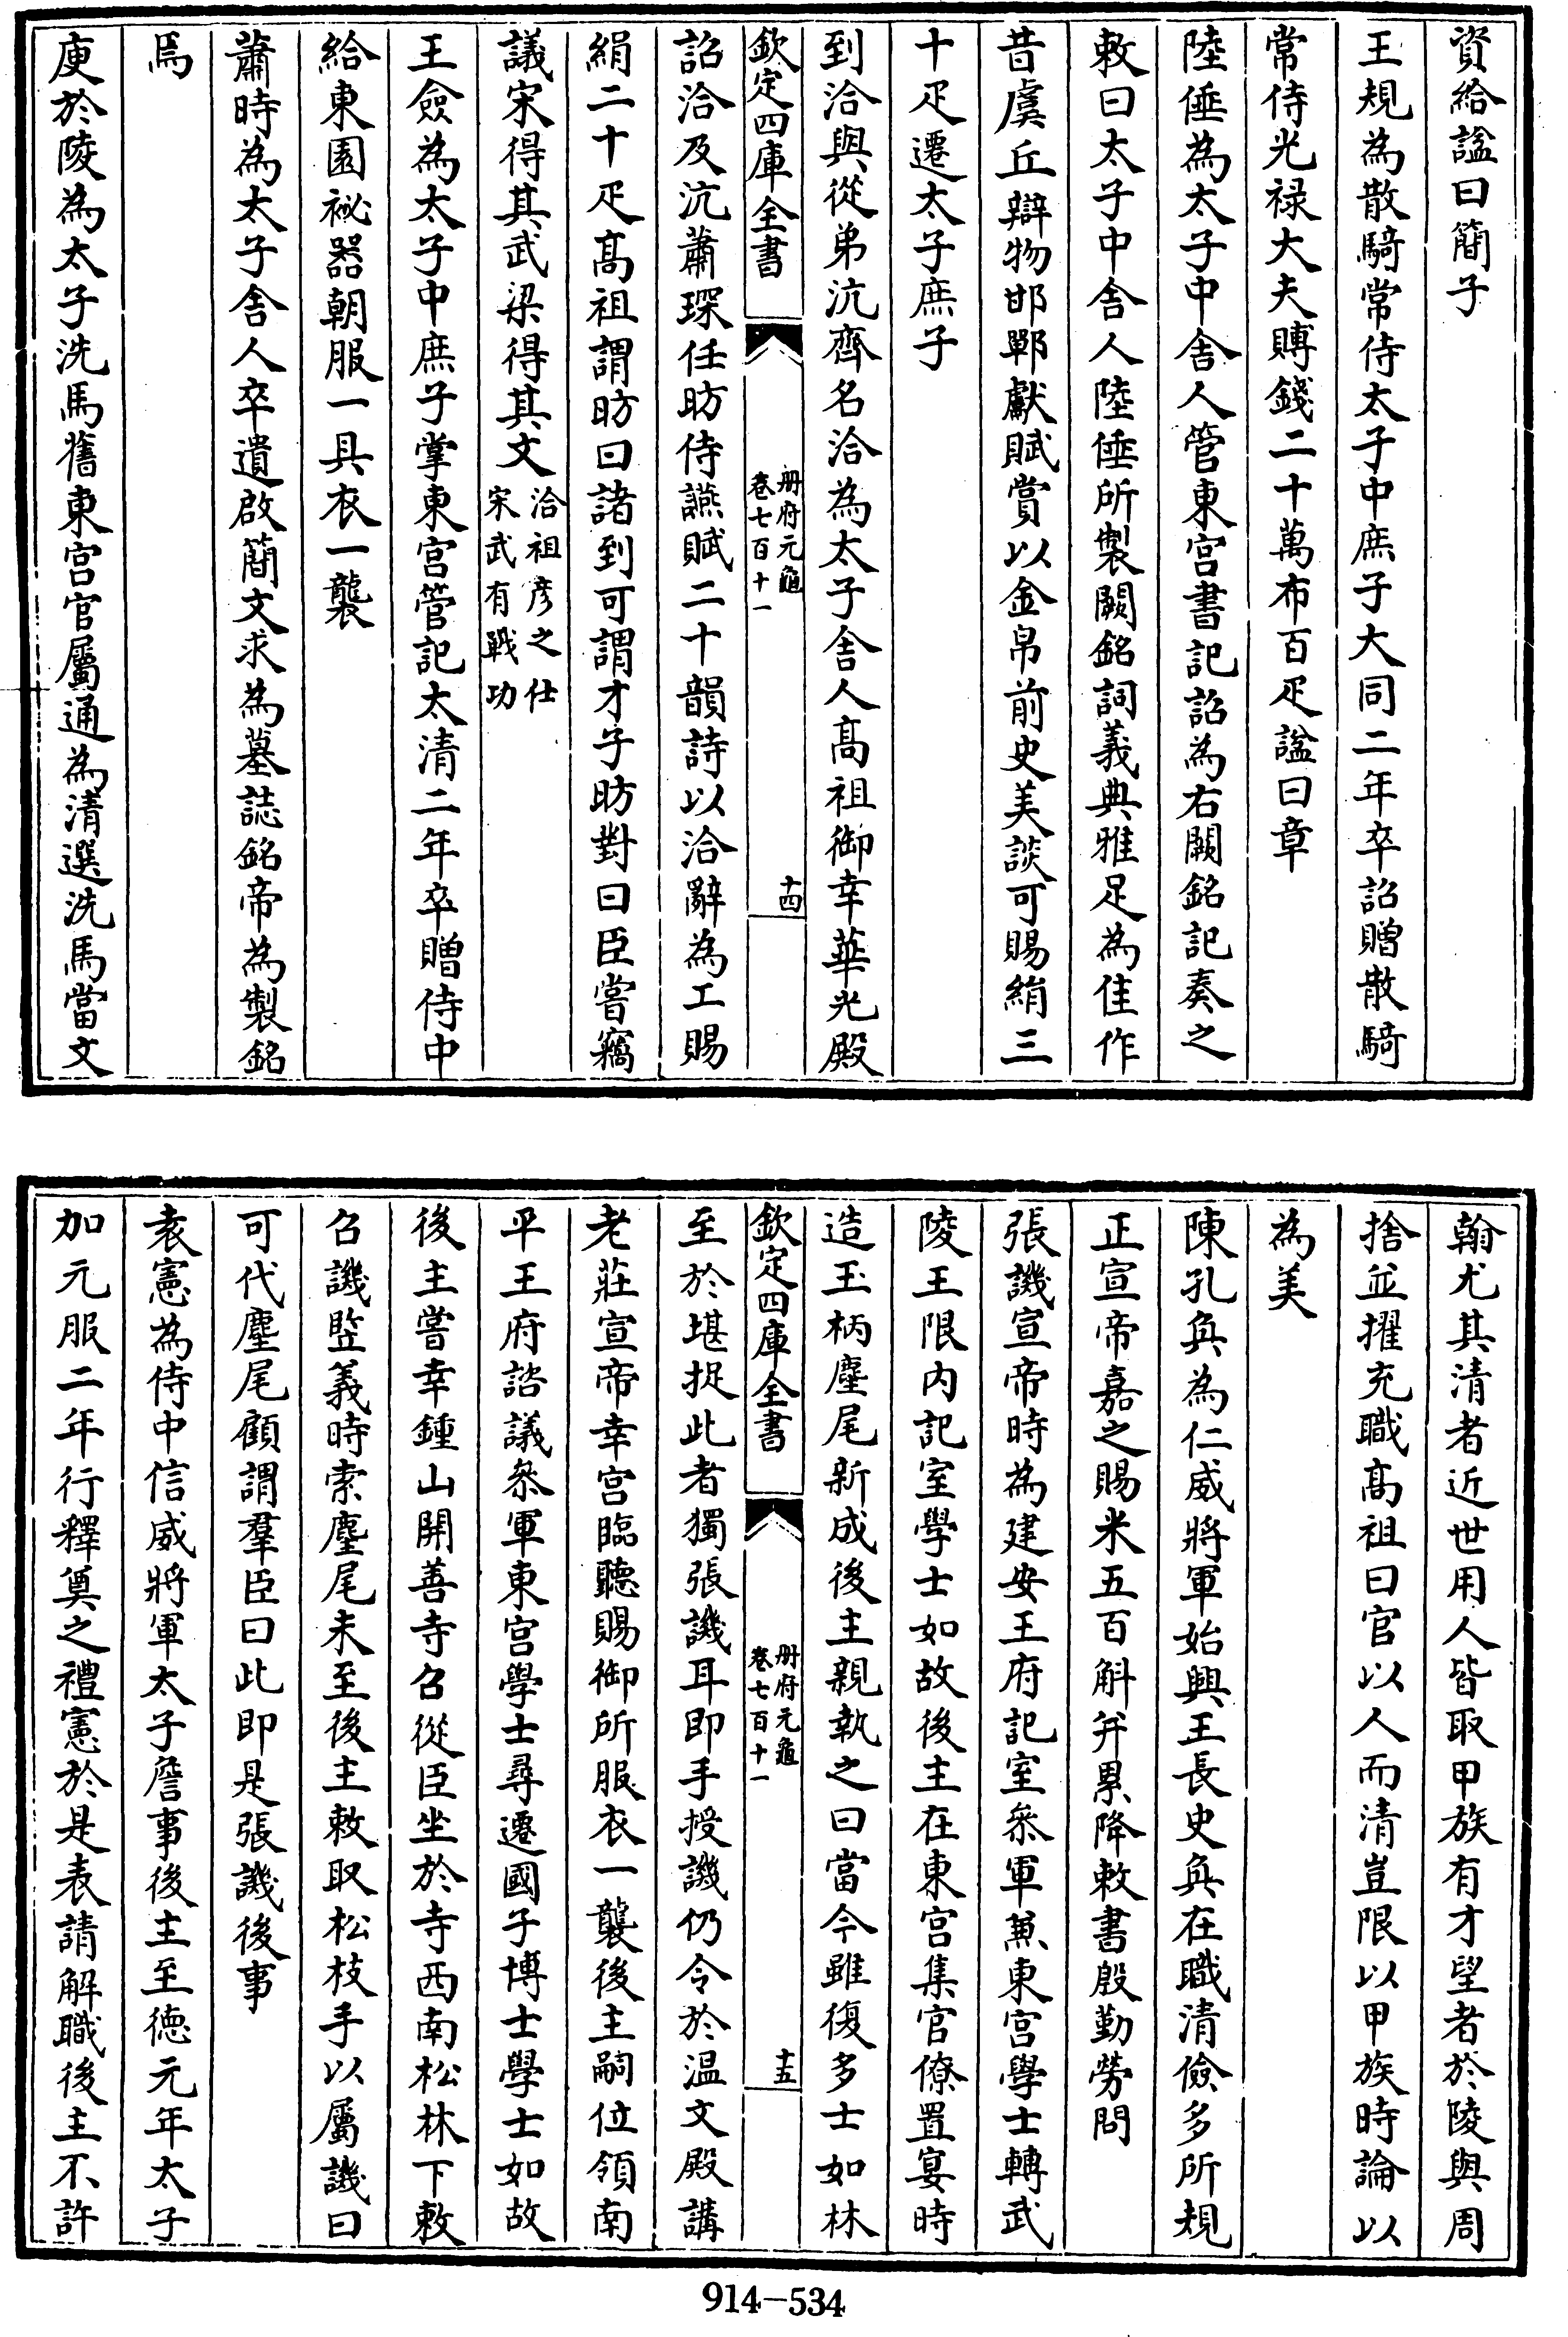 資給諡曰簡子
王規為散騎常侍太子中庶子大同二年卒詔贈散騎
常侍光禄大夫賻錢二十萬布百疋諡曰章
陸倕為太子中舍人管東宫書記詔為右闕銘記奏之
敕曰太子中舍人陸倕所製闕銘詞義典雅足為佳作
昔虞丘辯物邯鄲獻賦賞以金帛前史美談可賜絹三
十疋遷太子庶子
到洽與從弟沆齊名洽為太子舍人髙祖御幸華光殿
欽定四庫全書
册府元龜
卷七百十一
十四
詔洽及沆蕭琛任昉侍讌賦二十韻詩以洽辭為工賜
絹二十疋髙祖謂昉曰諸到可謂才子昉對曰臣嘗竊
議宋得其武梁得其文洽祖彦之仕宋武有戰功
王僉為太子中庶子掌東宫管記太清二年卒贈侍中
給東園祕器朝服一具衣一襲
蕭時為太子舍人卒遺啟簡文求為墓誌銘帝為製銘
焉
庾於陵為太子洗馬舊東宫官屬通為清選洗馬當文
翰尤其清者近世用人皆取甲族有才望者於陵與周
捨並擢充職髙祖曰官以人而清豈限以甲族時論以
為美
陳孔奐為仁威將軍始興王長史奐在職清儉多所規
正宣帝嘉之賜米五百斛并累降敕書殷勤勞問
張譏宣帝時為建安王府記室叅軍兼東宫學士轉武
陵王限内記室學士如故後主在東宫集官僚置宴時
造玉柄麈尾新成後主親執之曰當今雖復多士如林
欽定四庫全書
册府元龜
卷七百十一
十五
至於堪捉此者獨張譏耳即手授譏仍令於温文殿講
老莊宣帝幸宫臨聽賜御所服衣一襲後主嗣位領南
平王府諮議叅軍東宫學士尋遷國子博士學士如故
後主嘗幸鍾山開善寺召從臣坐於寺西南松林下敕
召譏竪義時索麈尾未至後主敕取松枝手以屬譏曰
可代麈尾顧謂羣臣曰此即是張譏後事
袁憲為侍中信威將軍太子詹事後主至徳元年太子
加元服二年行釋奠之禮憲於是表請解職後主不許
914-534